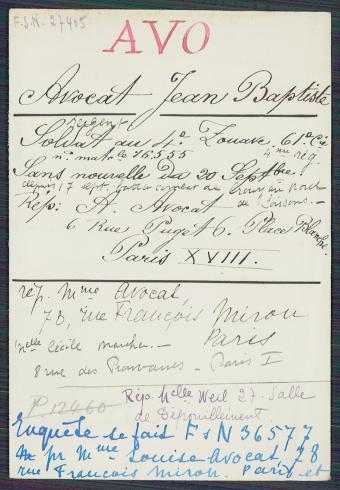 F.S.N. 27405
AVO
Avocat Jean Baptiste
Sergent
Soldat au 4e Zouave. 61e Cie
n° mat°le 16555 4me rég.
Sans nouvelle Da 20 Septbre
depuis 17 sept. de Soissons. -
Rép: A. Avocat
6 Rue Puget 6. Place Blanche.
Paris XVIII.
rép. Mme Avocat
78, rue François Miron
Paris
Melle Cécile -
8 rue des - Paris I
P.12460
Rép. Melle Weil 27. Salle
de Dépouillement
Enquête se fait FsN 36577
pr Mme Louise Avocat, 28
rue François Miron. Paris et